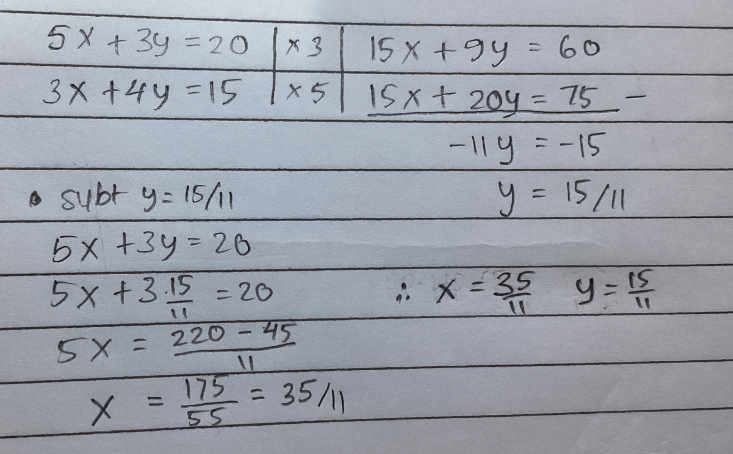 5x + 3y = 20 | x 3 | 15x + 9y = 60
3x + 4y = 15 | x 5 | 15x + 20y = 75 -
-11y = -15
• subt y = 15/11
y = 15/11
5x + 3y = 20
5x + 3·15/11 = 20
∴ x = 35/11 y = 15/11
5x = (220 - 45)/11
x = 175/55 = 35/11